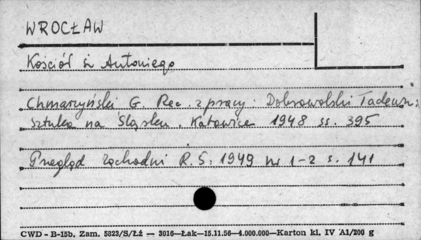 WROCŁAW
Kościół św Antoniego
Chmarzyński G. Rec. z pracy: Dobrowolski Tadeusz:
Sztuka na Śląsku. Katowice 1948 ss. 395
Przegląd Zachodni R. 5: 1949 nr 1-2 s. 141
CWD - B-15b, Zam. 5823/S/Łż — 3016—Łak—15.11.56—4.000.000—Karton kl. IV A1/200 g